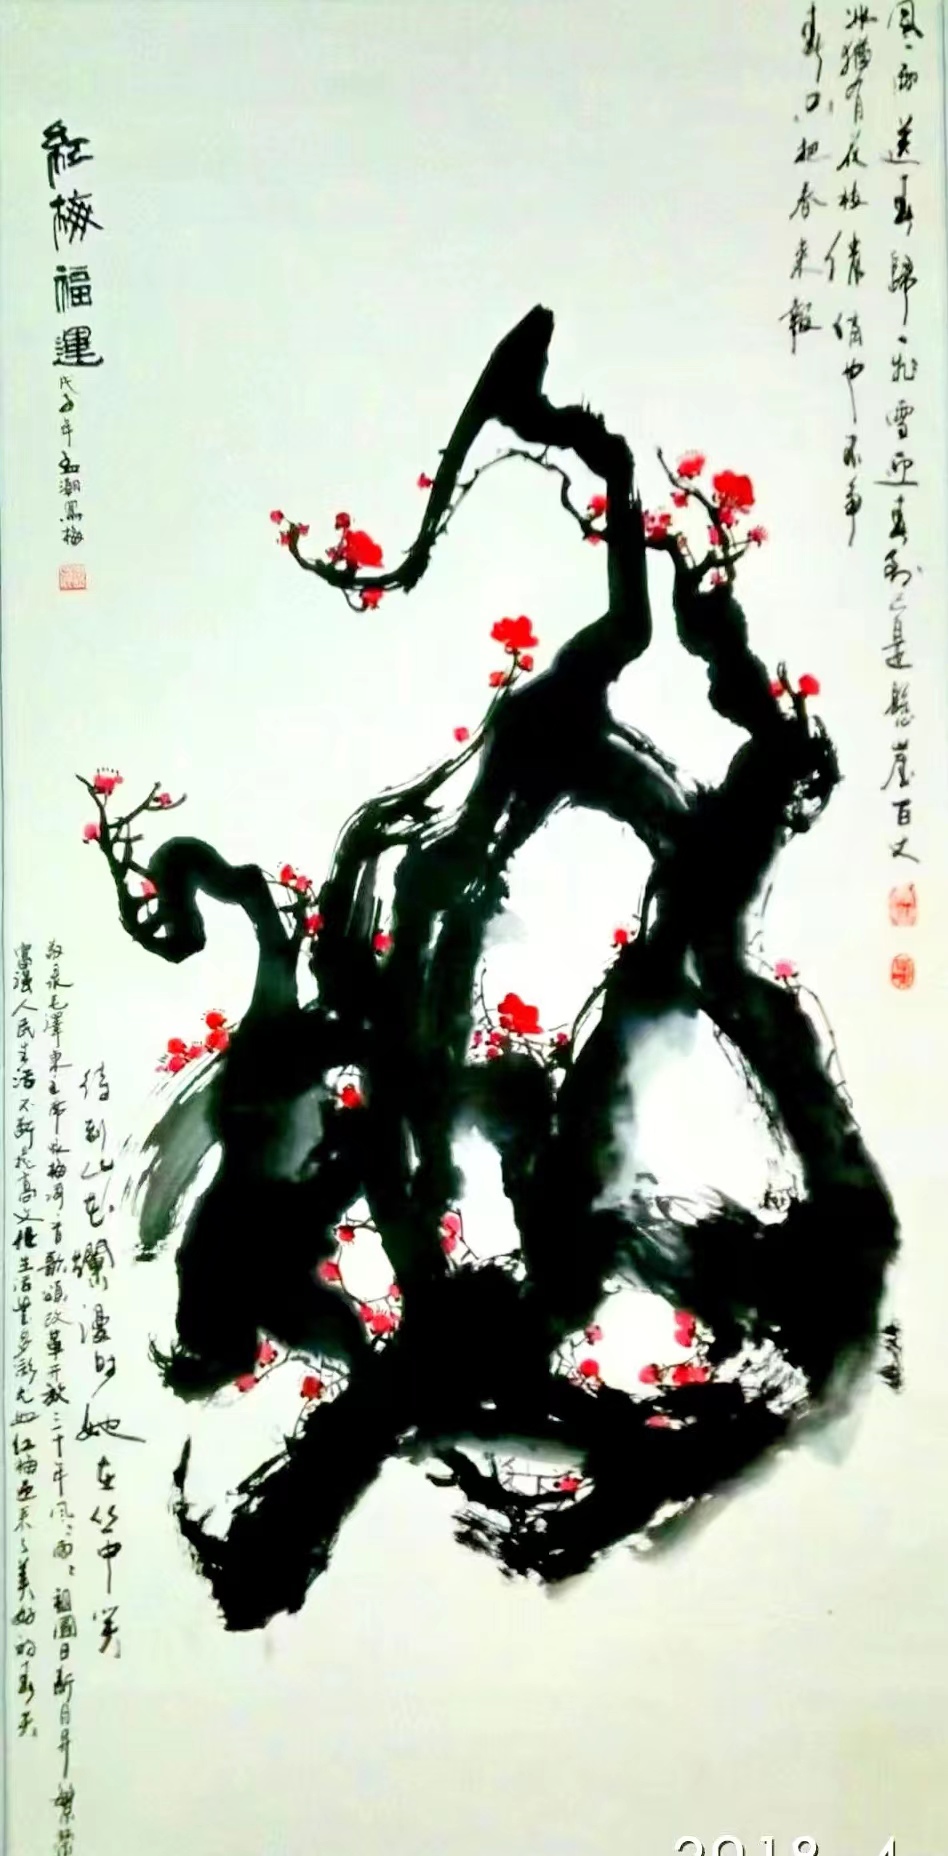 風、雨送春歸、飛雪迎春到已是懸崖百丈
冰猶有花枝俏俏也不爭
春只把春來報
紅梅福運
戊子年潮鳳梅
待到山花爛漫时她在丛中笑
敬录毛澤東主席咏梅词首歌頌改革开放三十年风、雨、祖國日新月异繁荣
富强人民生活不断提高文化生活多彩尤如红梅迎来了美好的春天
2018.4